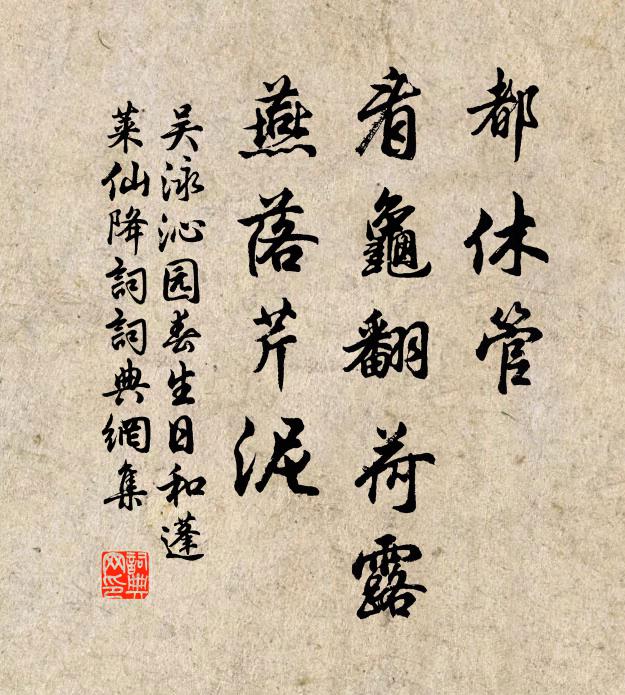 都休管
看龜翻荷露
燕落芹泥
吴泳沁园春生日和蓬
莱仙降詞詞典網集
詞典
网印